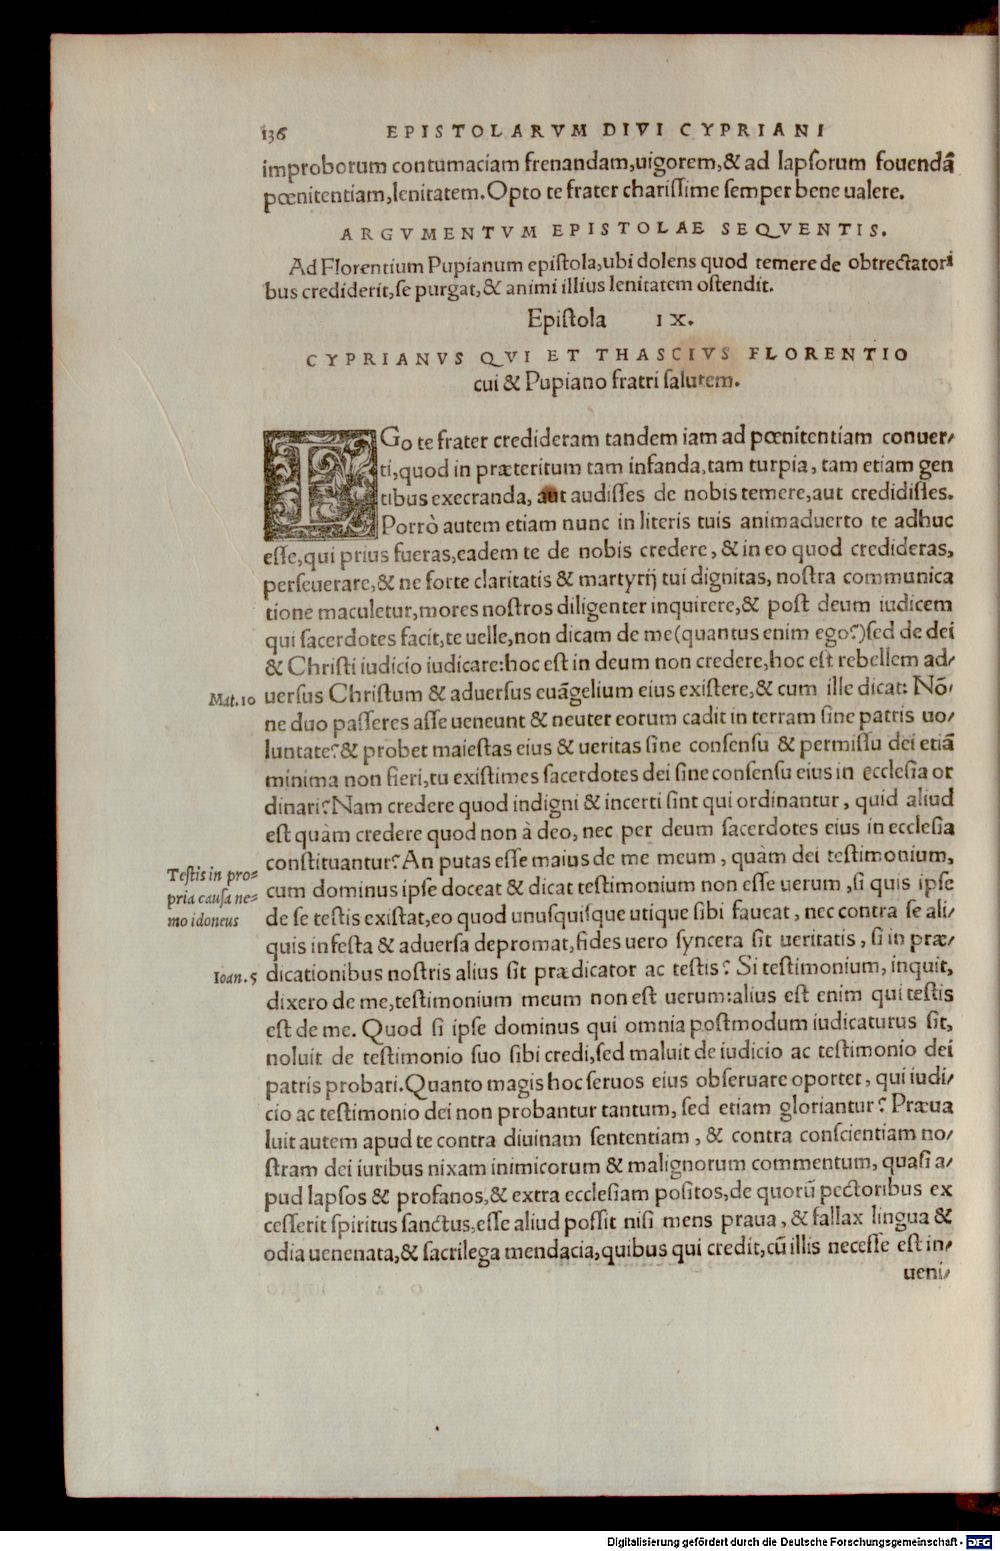 136 EPISTOLARVM DIVI CYPRIANI
improborum contumaciam frenandam,uigorem,& ad lapſorum fouendã
pœnitentiam,lenitatem.Opto te frater chariſſime ſemper bene ualere.
ARGVMENTVM EPISTOLAE SEQVENTIS.
Ad Florentium Pupianum epiſtola,ubi dolens quod temere de obtrectatori
bus crediderit,ſe purgat,& animi illius lenitatem oſtendit.
Epiſtola IX.
CYPRIANVS QVI ET THASCIVS FLORENTIO
cui & Pupiano fratri ſalutem.
EGo te frater credideram tandem iam ad pœnitentiam conuer/
ti,quod in præteritum tam infanda,tam turpia, tam etiam gen
tibus execranda, aut audiſſes de nobis temere,aut credidiſſes.
Porrò autem etiam nunc in literis tuis animaduerto te adhuc
eſſe,qui prius fueras,eadem te de nobis credere, & in eo quod credideras,
perſeuerare,& ne forte claritatis & martyrij tui dignitas, noſtra communica
tione maculetur,mores noſtros diligenter inquirere,& poſt deum iudicem
qui ſacerdotes facit,te uelle,non dicam de me(quantus enim ego?)ſed de dei
& Chriſti iudicio iudicare:hoc eſt in deum non credere,hoc eſt rebellem ad/
Mat.10 uerſus Chriſtum & aduerſus euãgelium eius exiſtere,& cum ille dicat: Nõ/
ne duo paſſeres aſſe ueneunt & neuter eorum cadit in terram ſine patris uo/
luntate?& probet maieſtas eius & ueritas ſine conſenſu & permiſſu dei etiã
minima non fieri,tu exiſtimes ſacerdotes dei ſine conſenſu eius in eccleſia or
dinari?Nam credere quod indigni & incerti ſint qui ordinantur, quid aliud
eſt quàm credere quod non à deo, nec per deum ſacerdotes eius in eccleſia
conſtituantur?An putas eſſe maius de me meum, quàm dei teſtimonium,
Teſtis in pro=
pria cauſa ne=
mo idoneus
cum dominus ipſe doceat & dicat teſtimonium non eſſe uerum,ſi quis ipſe
de ſe teſtis exiſtat,eo quod unuſquiſque utique ſibi faueat, nec contra ſe ali/
quis infeſta & aduerſa depromat,fides uero ſyncera ſit ueritatis, ſi in præ/
Ioan.5 dicationibus noſtris alius ſit prædicator ac teſtis? Si teſtimonium, inquit,
dixero de me,teſtimonium meum non eſt uerum:alius eſt enim qui teſtis
eſt de me. Quod ſi ipſe dominus qui omnia poſtmodum iudicaturus ſit,
noluit de teſtimonio ſuo ſibi credi,ſed maluit de iudicio ac teſtimonio dei
patris probari.Quanto magis hoc ſeruos eius obſeruare oportet, qui iudi/
cio ac teſtimonio dei non probantur tantum, ſed etiam gloriantur? Præua
luit autem apud te contra diuinam ſententiam, & contra conſcientiam no/
ſtram dei iuribus nixam inimicorum & malignorum commentum, quaſi a/
pud lapſos & profanos,& extra eccleſiam poſitos,de quorũ pectoribus ex
ceſſerit ſpiritus ſanctus,eſſe aliud poſſit niſi mens praua, & fallax lingua &
odia uenenata,& ſacrilega mendacia,quibus qui credit,cũ illis neceſſe eſt in/
ueni/
Digitalisierung gefördert durch die Deutsche Forschungsgemeinschaft - DFG